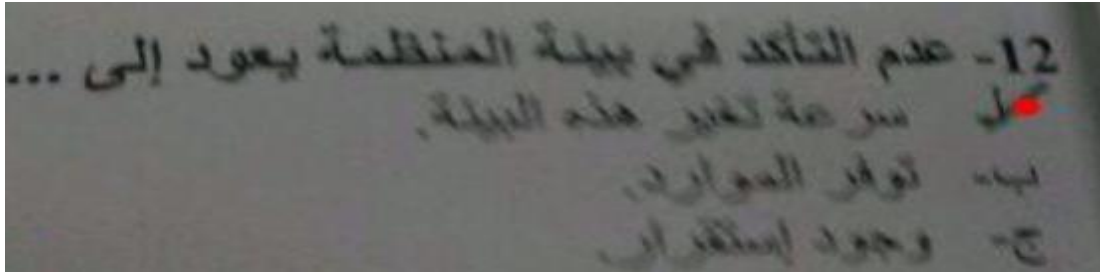 12- عدم التأكد في بيئة المنظمة يعود إلى ...
سرعة تغير هذه البيئة.
ب- توفر الموارد.
ج- وجود إستقرار.